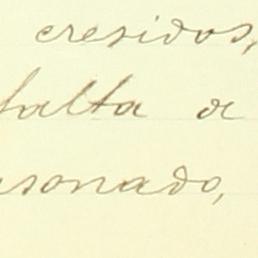 cresidos,
falta de
asonado,